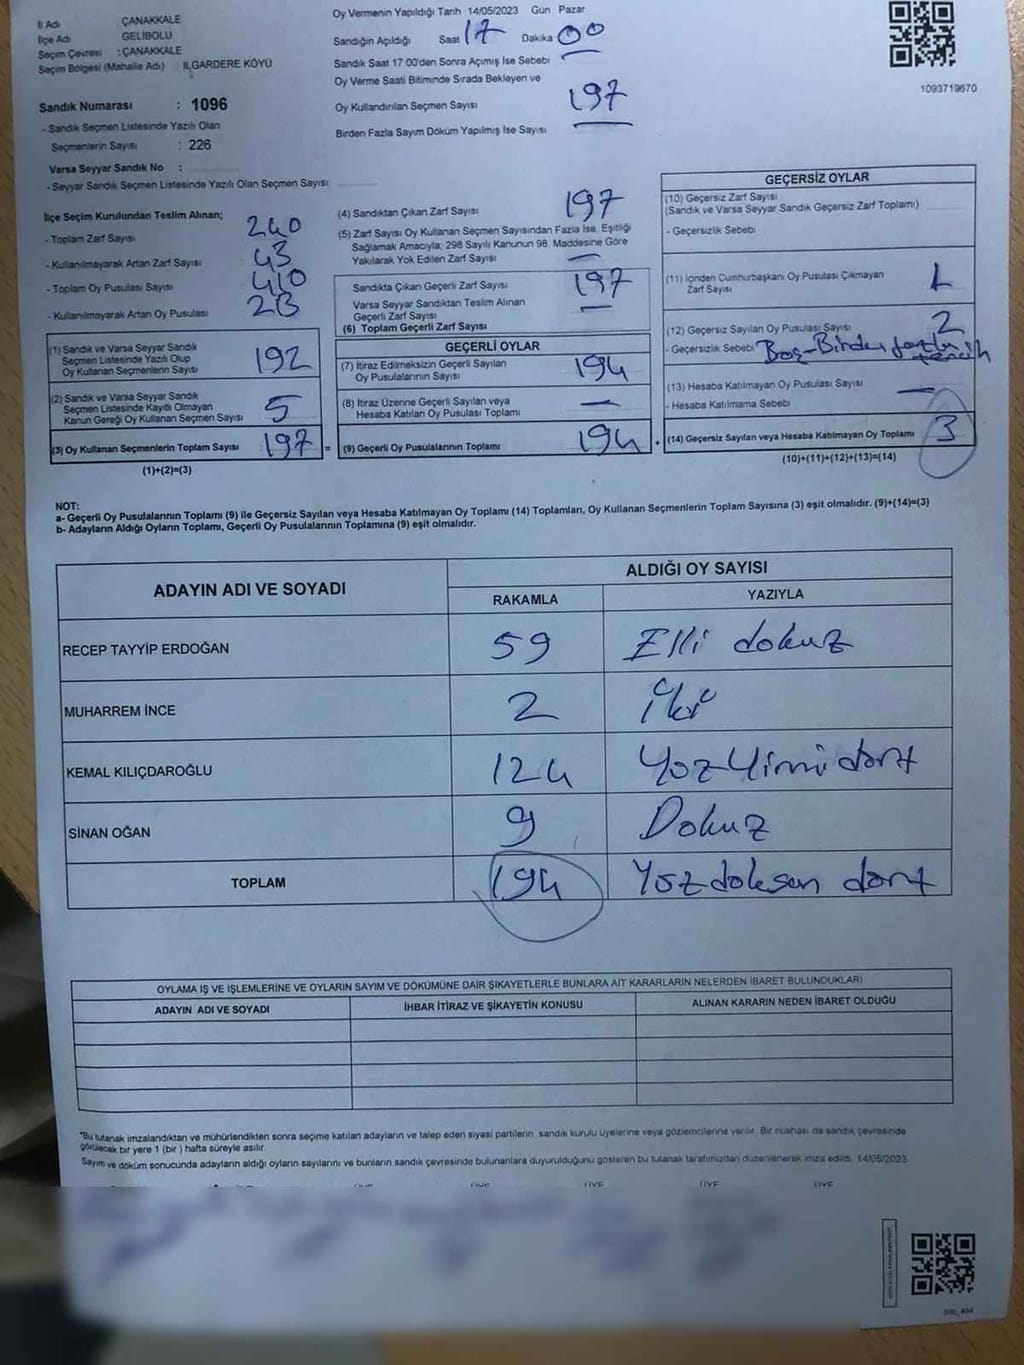 İl Adı ÇANAKKALE
İlçe Adı GELİBOLU
Seçim Çevresi : ÇANAKKALE
Seçim Bölgesi (Mahalle Adı) ILGARDERE KÖYÜ
Sandık Numarası : 1096
- Sandık Seçmen Listesinde Yazılı Olan
Seçmenlerin Sayısı : 226
Varsa Seyyar Sandık No :
- Seyyar Sandık Seçmen Listesinde Yazılı Olan Seçmen Sayısı
Oy Vermenin Yapıldığı Tarih 14/05/2023 Gün Pazar
Sandığın Açıldığı Saat 17 Dakika 00
Sandık Saat 17 00'den Sonra Açımış İse Sebebi
Oy Verme Saati Bitiminde Sırada Bekleyen ve
Oy Kullandırılan Seçmen Sayısı 197
Birden Fazla Sayım Döküm Yapılmış İse Sayısı
1093719670
İlçe Seçim Kurulundan Teslim Alınan;
- Toplam Zarf Sayısı 240
- Kullanılmayarak Artan Zarf Sayısı 43
- Toplam Oy Pusulası Sayısı 410
- Kullanılmayarak Artan Oy Pusulası 213
(1) Sandık ve Varsa Seyyar Sandık
Seçmen Listesinde Yazılı Olup
Oy Kullanan Seçmenlerin Sayısı 192
(2) Sandık ve Varsa Seyyar Sandık
Seçmen Listesinde Kayıtlı Olmayan
Kanun Gereği Oy Kullanan Seçmen Sayısı 5
(3) Oy Kullanan Seçmenlerin Toplam Sayısı 197 =
(1)+(2)=(3)
(4) Sandıktan Çıkan Zarf Sayısı 197
(5) Zarf Sayısı Oy Kullanan Seçmen Sayısından Fazla İse, Eşitliği
Sağlamak Amacıyla; 298 Sayılı Kanunun 98. Maddesine Göre
Yakılarak Yok Edilen Zarf Sayısı —
Sandıkta Çıkan Geçerli Zarf Sayısı 197
Varsa Seyyar Sandıktan Teslim Alınan
Geçerli Zarf Sayısı —
(6) Toplam Geçerli Zarf Sayısı
GEÇERLİ OYLAR
(7) İtiraz Edilmeksizin Geçerli Sayılan
Oy Pusulalarının Sayısı 194
(8) İtiraz Üzerine Geçerli Sayılan veya
Hesaba Katılan Oy Pusulası Toplamı —
(9) Geçerli Oy Pusulalarının Toplamı 194 +
GEÇERSİZ OYLAR
(10) Geçersiz Zarf Sayısı
(Sandık ve Varsa Seyyar Sandık Geçersiz Zarf Toplamı)
- Geçersizlik Sebebi
(11) İçinden Cumhurbaşkanı Oy Pusulası Çıkmayan
Zarf Sayısı 1
(12) Geçersiz Sayılan Oy Pusulası Sayısı 2
- Geçersizlik Sebebi Boş-Birden fazla tercih
(13) Hesaba Katılmayan Oy Pusulası Sayısı —
- Hesaba Katılmama Sebebi
(14) Geçersiz Sayılan veya Hesaba Katılmayan Oy Toplamı 3
(10)+(11)+(12)+(13)=(14)
NOT:
a- Geçerli Oy Pusulalarının Toplamı (9) ile Geçersiz Sayılan veya Hesaba Katılmayan Oy Toplamı (14) Toplamları, Oy Kullanan Seçmenlerin Toplam Sayısına (3) eşit olmalıdır. (9)+(14)=(3)
b- Adayların Aldığı Oyların Toplamı, Geçerli Oy Pusulalarının Toplamına (9) eşit olmalıdır.
ADAYIN ADI VE SOYADI ALDIĞI OY SAYISI
RAKAMLA YAZIYLA
RECEP TAYYİP ERDOĞAN 59 Elli dokuz
MUHARREM İNCE 2 iki
KEMAL KILIÇDAROĞLU 124 Yüz Yirmi dört
SİNAN OĞAN 9 Dokuz
TOPLAM 194 Yüz doksan dört
OYLAMA İŞ VE İŞLEMLERİNE VE OYLARIN SAYIM VE DÖKÜMÜNE DAİR ŞİKAYETLERLE BUNLARA AİT KARARLARIN NELERDEN İBARET BULUNDUKLARI
ADAYIN ADI VE SOYADI İHBAR İTİRAZ VE ŞİKAYETİN KONUSU ALINAN KARARIN NEDEN İBARET OLDUĞU
*Bu tutanak imzalandıktan ve mühürlendikten sonra seçime katılan adayların ve talep eden siyasi partilerin, sandık kurulu üyelerine veya gözlemcilerine verilir. Bir nüshası da sandık çevresinde
görülecek bir yere 1 (bir) hafta süreyle asılır.
Sayım ve döküm sonucunda adayların aldığı oyların sayılarını ve bunların sandık çevresinde bulunanlara duyurulduğunu gösteren bu tutanak tarafımızdan düzenlenerek imza edildi. 14/05/2023
ÜYE ÜYE ÜYE ÜYE ÜYE